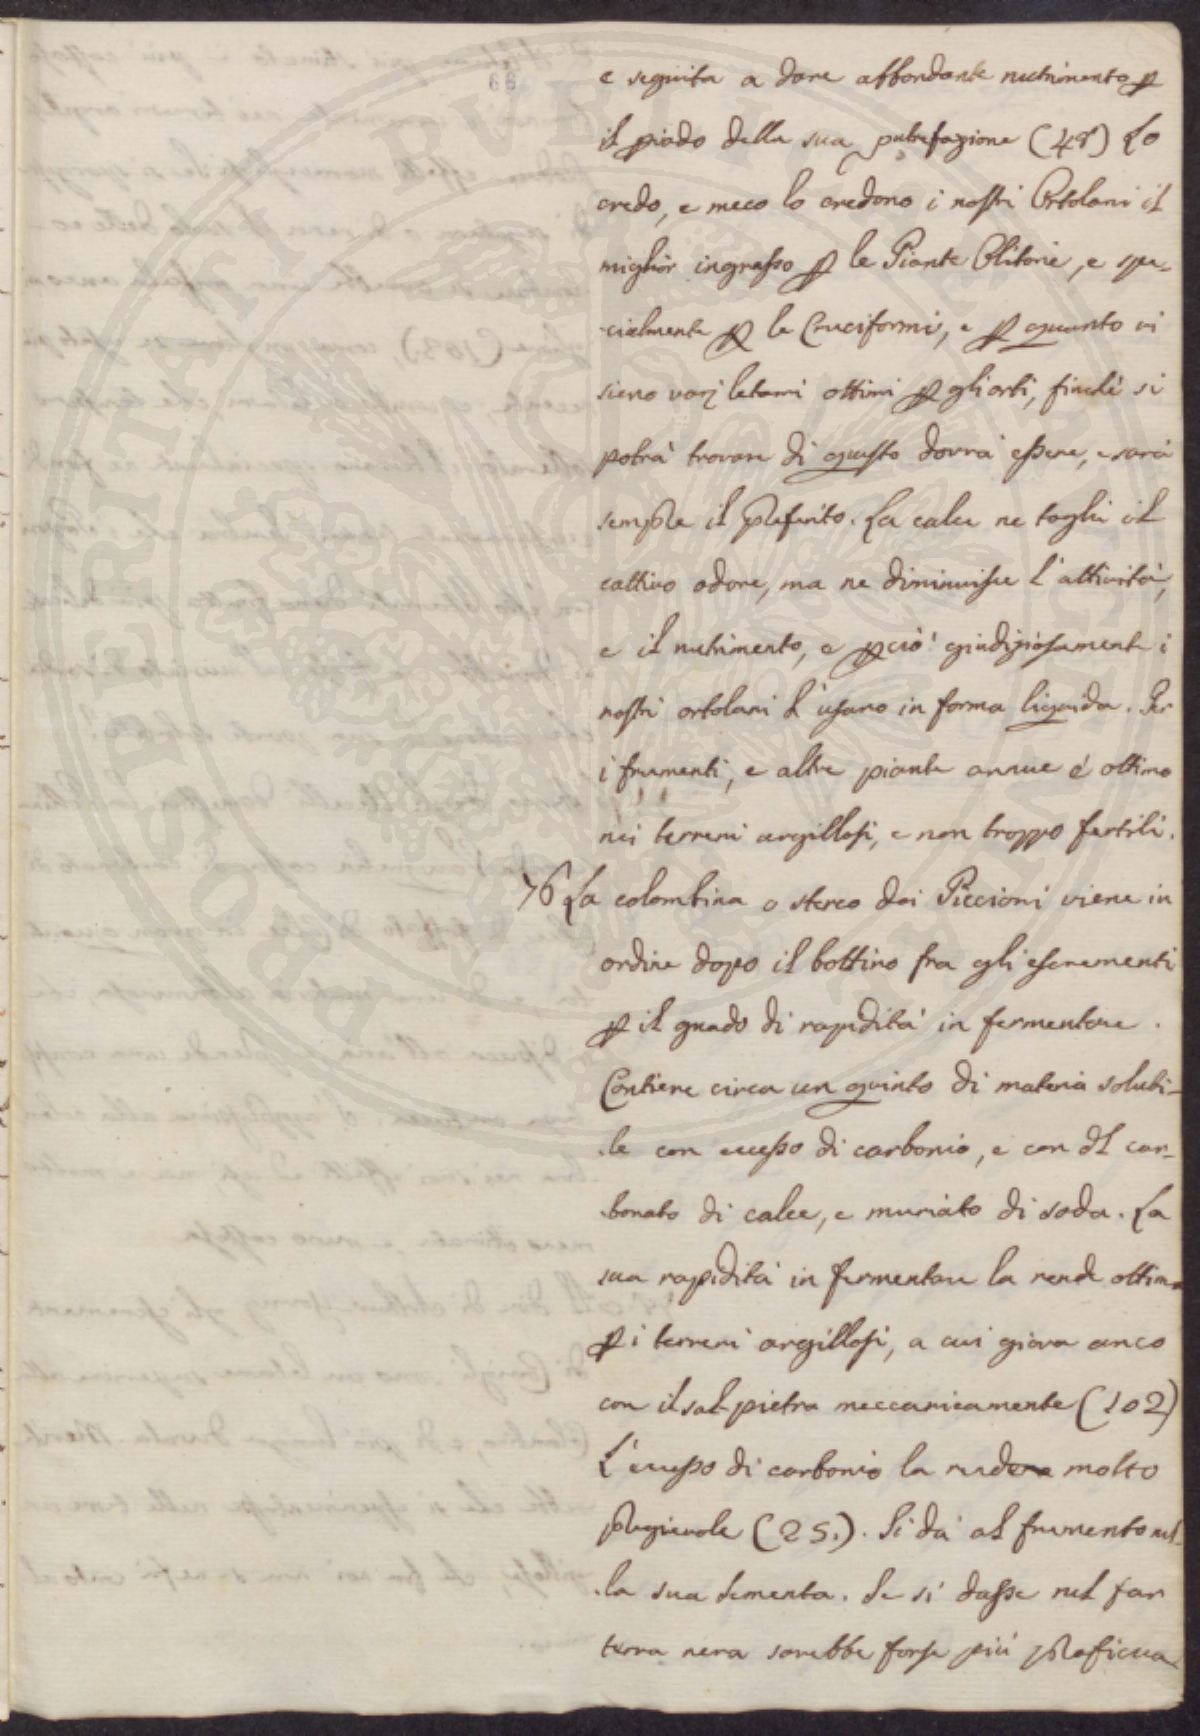 e seguita a dare abbondante nutrimento ꝑ
il ꝑiodo della sua putrefazione (48) Lo
credo, e meco lo credono i nostri Ortolani il
miglior ingrasso ꝑ le Piante Olitorie, e spe-
-cialmente ꝑ le Cruciformi, e ꝑ quanto vi
sieno varj letami ottimi ꝑ gli orti, finchè si
potrà trovare di questo dovrà essere, e sarà
sempre il preferito. La calce ne toglie il
cattivo odore, ma ne diminuisce l'attività,
e il nutrimento, e ꝑciò giudiziosamente i
nostri ortolani l'usano in forma liquida. Per
i frumenti, e altre piante annue è ottimo
nei terreni argillosi, e non troppo fertili.
76 La colombina o sterco dei Piccioni viene in
ordine dopo il bottino fra gli escrementi
ꝑ il grado di rapidità in fermentare.
Contiene circa un quinto di materia solubi-
-le con eccesso di carbonio, e con del car-
-bonato di calce, e muriato di soda. La
sua rapidità in fermentare la rende ottima
ꝑ i terreni argillosi, a cui giova anco
con il sal pietra meccanicamente (102)
L'eccesso di carbonio la rende molto
pregievole (25.). Si dà al frumento nel-
-la sua sementa. Se si dasse nel far
terra nera sarebbe forse più proficua
66
PROSPERITATI PVBLICAE